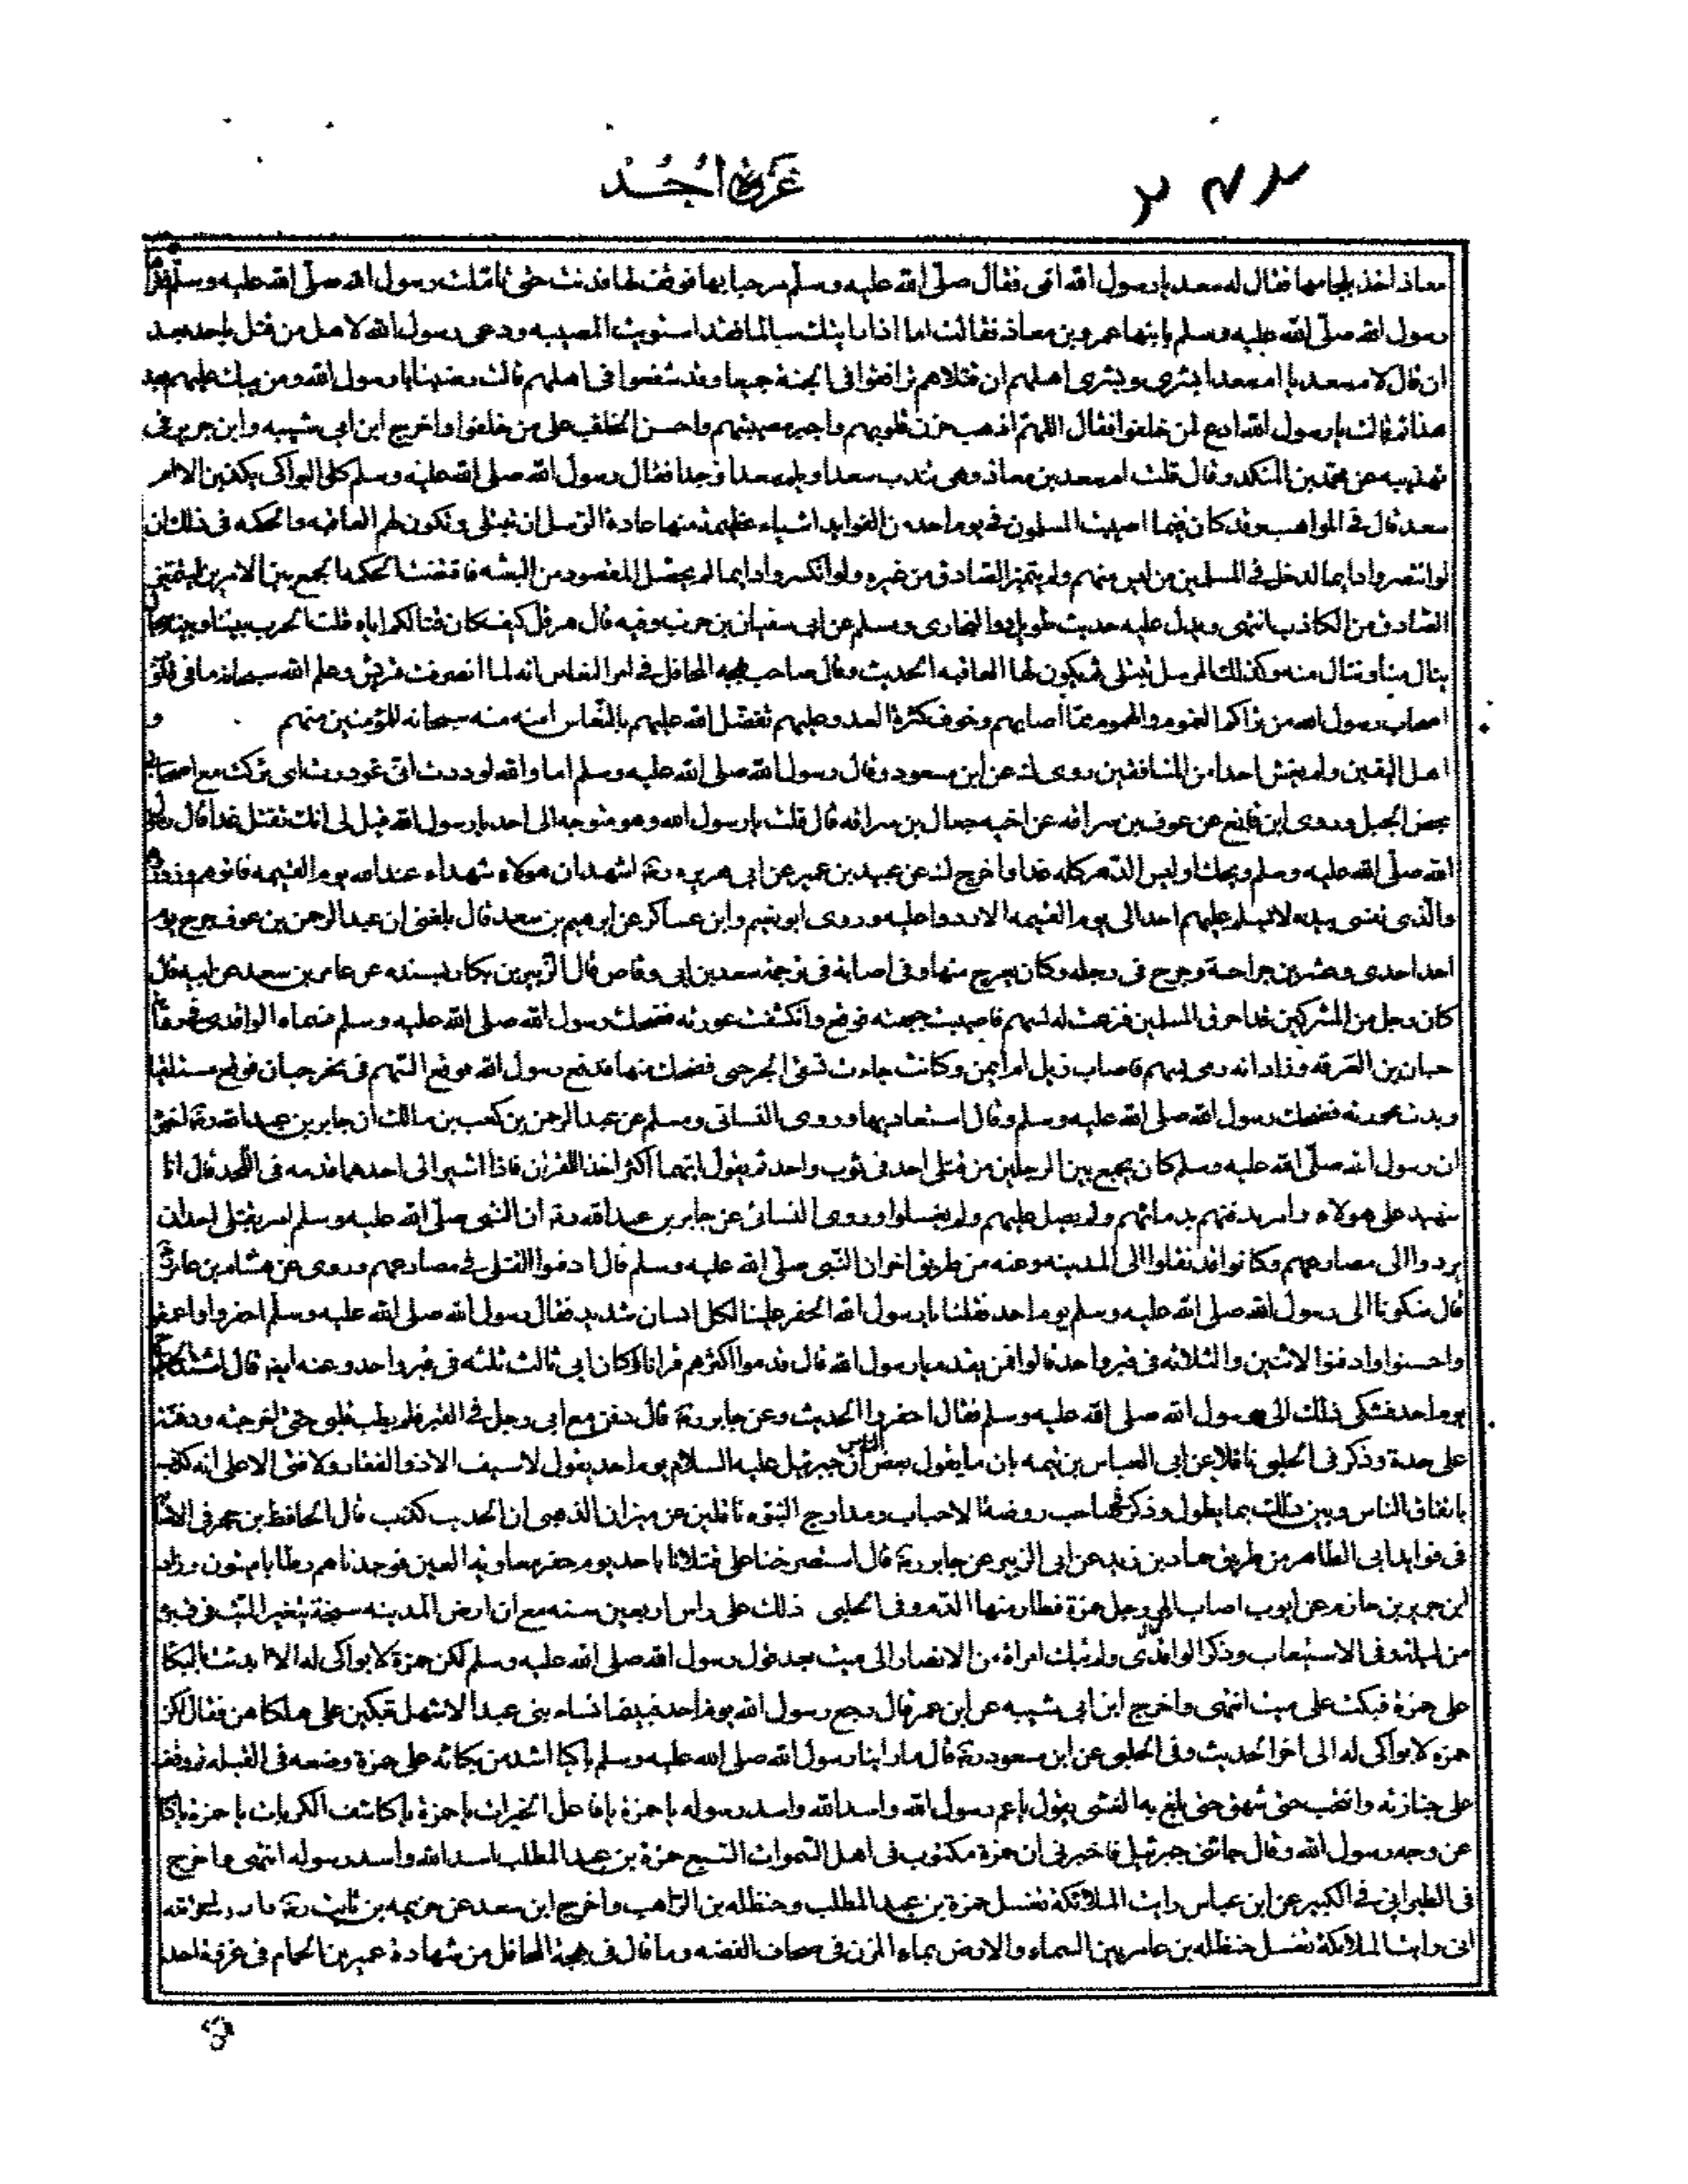 ٢٧٢ غزوة اُحُد
معاذ اخذ بلجامها فقال له سعد يا رسول الله امى فقال صلّى الله عليه وسلّم مرحبا بها فوقف لها فدنت حتى تاملت رسول الله صلّى الله عليه وسلّم
رسول الله صلّى الله عليه وسلم بابنها عمرو بن معاذ فقالت اما اذا رايتك سالما فقد استويت المصيبه ودعى رسول الله لاهل من قتل باحد بعد
ان قال لام سعد يا ام سعد ابشرى وبشرى اهلهم ان قتلاهم ترافقوا فى الجنة جميعا وقد شفعوا فى اهلهم قالت رضينا يا رسول الله ومن يبك عليهم بعد
هذا ثم قالت يا رسول الله ادع لمن خلفوا فقال اللهم اذهب حزن قلوبهم واجبر مصيبتهم واحسن الخلف على من خلفوا واخرج ابن ابى شيبه وابن جرير فى
تهذيبه عن محمد بن المنكدر وقال قلت ام سعد بن معاذ وهى تندب سعدا ويلم سعدا وجدا فقال رسول الله صلى الله عليه وسلم كل البواكى يكذبن الا ام
سعد قال فى المواهب وقد كان فيما اصيبت المسلمون فى يوم احد من الفوايد اشياء عظيمة منها عادة الرسل ان تبتلى وتكون لهم العاقبه والحكمه فى ذلك ان
لو انتصروا دايما لدخل فى المسلمين من ليس منهم ولم يتميز الصادق من غيره ولو انكسروا دايما لم يحصل المقصود من البعثه فاقتضت الحكمه الجمع بين الامرين ليتميز
الصادق من الكاذب انتهى ويدل عليه حديث طويل رواه البخارى ومسلم عن ابى سفيان بن حرب وفيه قال هرقل كيف كان قتالكم اياه قلت الحرب بيننا وبينه
ينال منا وننال منه وكذلك الرسل تبتلى ثم يكون لها العاقبه الحديث وقال صاحب بهجة المحافل فى امر النعاس انه لما انصرفت قريش وعلم الله سبحانه ما فى قلوب
اصحاب رسول الله من تراكم الغموم والهموم مما اصابهم وخوف كثرة العدو عليهم تفضل الله عليهم بالنعاس امنه منه سبحانه للمؤمنين منهم و
اهل اليقين ولم يغش احدا من المنافقين روى عن ابن مسعود وقال رسول الله صلى الله عليه وسلم اما والله لوددت انى غودرت تركت مع اصحابى
بحض الجبل وروى ابن قانع عن عوف بن سراقه عن اخيه جعال بن سراقه قال قلت يا رسول الله وهو متوجه الى احد يا رسول الله قيل لى انك تقتل غدا قال
الله صلّى الله عليه وسلم ويحك اوليس الدهر كله غدا واخرج عن عبيد بن عمير عن ابى هريره رضـ اشهد ان هولاء شهداء عند الله يوم القيمه فاتوهم
والّذى نفسى بيده لا يسلم عليهم احد الى يوم القيمه الا ردوا عليه وروى ابو نعيم وابن عساكر عن ابرهيم بن سعد قال بلغنى ان عبد الرحمن بن عوف جرح يوم
احد احدى وعشرين جراحة وجرح فى رجله وكان يعرج منها وفى اصابة فى ترجمة سعد بن ابى وقاص قال الزبير بن بكار بسنده عن عامر بن سعد عن ابيه قال
كان رجل من المشركين قد احرق المسلمين فنزعت له بسهم فاصيبت جبهته فوقع وانكشفت عورته فضحك رسول الله صلى الله عليه وسلم فسماه الواقدى
حبان بن العرقه وزاد انه رمى بسهم فاصاب ذيل ام ايمن وكانت جاءت تسقى الجرحى فضحك منها فدفع رسول الله فوقع السهم فى نحر حبان فوقع مستلقيا
وبدت عورته فضحك رسول الله صلى الله عليه وسلم وقال استعاد بها وروى النسائى ومسلم عن عبد الرحمن بن كعب بن مالك ان جابر بن عبد الله رضـ اخبره
ان رسول الله صلّى الله عليه وسلم كان يجمع بين الرجلين من قتلى احد فى ثوب واحد ثم يقول ايهما اكثر اخذا للقران فاذا اشير الى احدهما قدمه فى اللحد قال انا
شهيد على هولاء وامر بدفنهم بدمائهم ولم يصل عليهم ولم يغسلوا وروى النسائى عن جابر بن عبد الله رضـ ان النبى صلّى الله عليه وسلم امر بقتلى احد ان
يردوا الى مصارعهم وكانوا قد نقلوا الى المدينه وعنه من طريق اخر ان النبى صلّى الله عليه وسلم قال ادفنوا القتلى فى مصارعهم وروى عن هشام بن عامر
قال شكونا الى رسول الله صلى الله عليه وسلم يوم احد فقلنا يا رسول الله الحفر علينا لكل انسان شديد فقال رسول الله صلى الله عليه وسلم احفروا واعمقوا
واحسنوا وادفنوا الاثنين والثلاثه فى قبر واحد قالوا فمن يقدم يا رسول الله قال قدموا اكثرهم قرانا وكان ابى ثالث ثلثه فى قبر واحد وعنه ايضـ قال
يوم احد فشكى ذلك الى رسول الله صلى الله عليه وسلم فقال احفروا الحديث وعن جابر رضـ قال دفن مع ابى رجل فى القبر فلم يطب قلبى حتى اخرجته ودفنته
على حدة وذكر فى الحلبى ناقلا عن ابى العباس بن تيميه بان ما يقول بعض الناس ان جبرئيل عليه السلام يوم احد يقول لا سيف الا ذو الفقار ولا فتى الا على انه كذب
باتفاق الناس وبين ذلك بما يطول وذكر صاحب روضة الاحباب ومدارج النبوه ناقلين عن ميزان الذهبى ان الحديث كذب قال الحافظ بن حجر فى
فى فوايد ابى الطاهر من طريق حماد بن زيد عن ابى الزبير عن جابر رضـ قال استصرخنا على قتلانا باحد يوم حفر معاويه العين فوجدناهم رطابا يتثنون وزاد
ابن جرير بن حازم عن ايوب اصاب المر رجل حمزة فطار منها الدم وفى الحلبى ذلك على راس اربعين سنه مع ان ارض المدينه سبخة يتغير الميت فى قبره
من ليلته وفى الاستيعاب وذكر الواقدى ولم تبك امراة من الانصار الى ميت بعد قول رسول الله صلى الله عليه وسلم لكن حمزة لا بواكى له الا بدئت بالبكا
على حمزة فبكت على ميت انتهى واخرج ابن ابى شيبه عن ابن عمر قال رجع رسول الله يوم احد نساء بنى عبد الاشهل تبكين على هلكاهن فقال لكن
حمزه لا بواكى له الى اخر الحديث وفى الحلبى عن ابن مسعود رضـ قال ما راينا رسول الله صلى الله عليه وسلم باكيا اشد من بكائه على حمزة وضعه فى القبله ثم وقف
على جنازته وانتحب حتى شهق حتى بلغ به الغشى يقول يا عم رسول الله واسد الله واسد رسوله يا حمزة يا فاعل الخيرات يا حمزة يا كاشف الكربات يا حمزة
عن وجه رسول الله وقال جائنى جبرئيل فاخبرنى ان حمزة مكتوب فى اهل السموات السبع حمزة بن عبد المطلب اسد الله واسد رسوله انتهى واخرج
فى الطبرانى فى الكبير عن ابن عباس رايت الملائكة تغسل حمزة بن عبد المطلب وحنظله بن الراهب واخرج ابن سعد عن خزيمه بن ثابت رضـ
انى رايت الملائكة تغسل حنظله بن عامر بين السماء والارض بماء المزن فى صحاف الفضه وما قال فى بهجة المحافل من شهادة عمير بن الحمام فى غزوة احد